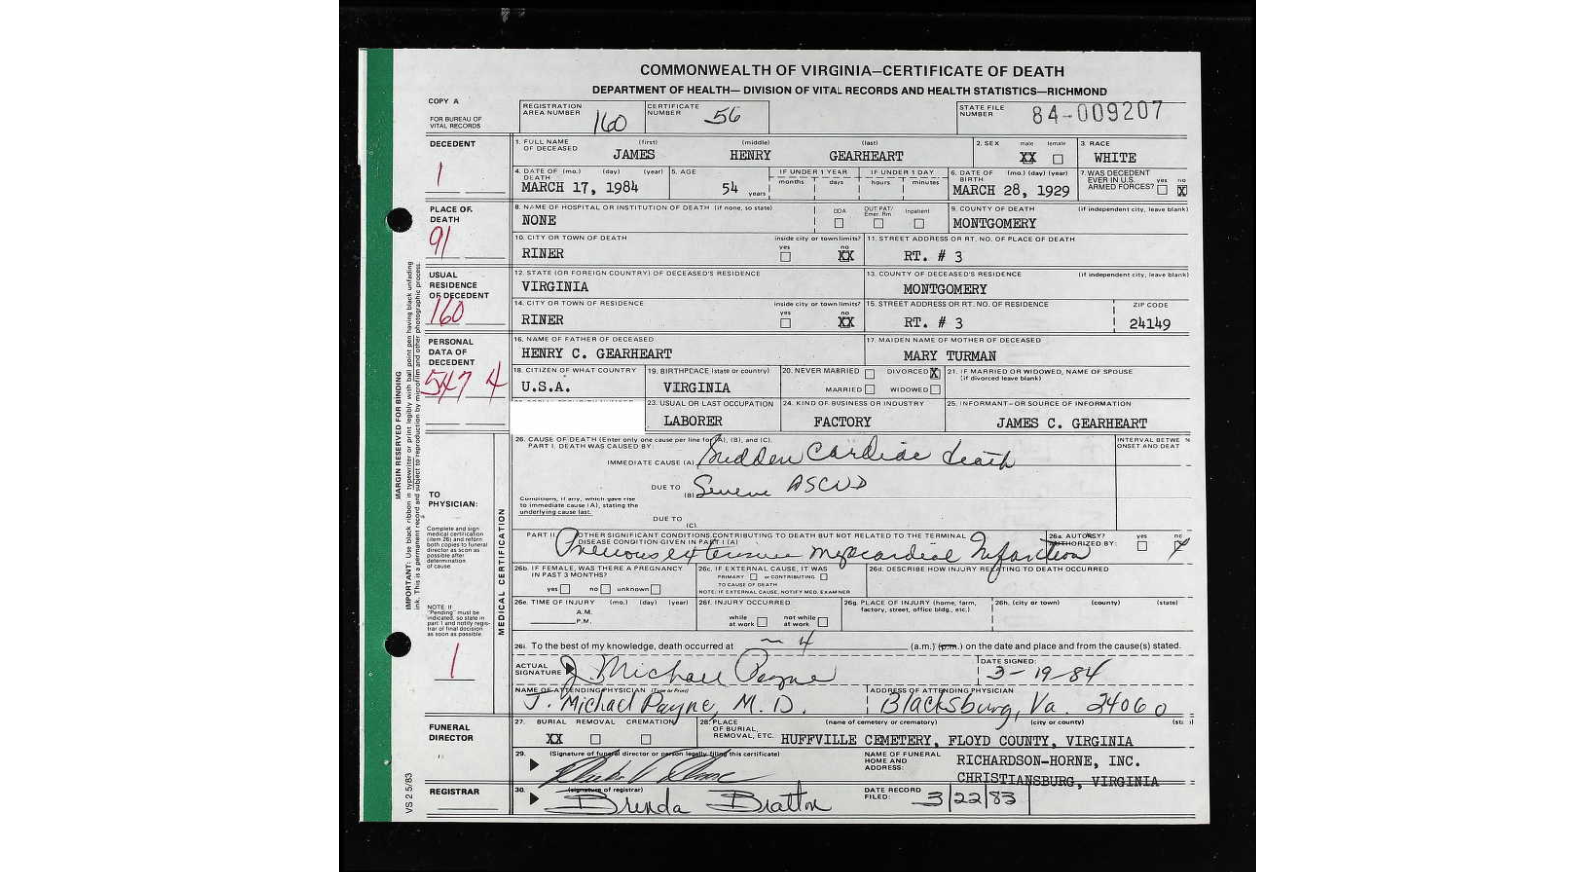 COMMONWEALTH OF VIRGINIA—CERTIFICATE OF DEATH
DEPARTMENT OF HEALTH— DIVISION OF VITAL RECORDS AND HEALTH STATISTICS—RICHMOND
COPY A
FOR BUREAU OF VITAL RECORDS
REGISTRATION AREA NUMBER 160
CERTIFICATE NUMBER 56
STATE FILE NUMBER 84-009207
DECEDENT
1
1. FULL NAME OF DECEASED (first) (middle) (last)
JAMES HENRY GEARHEART
2. SEX male female
XX
3. RACE
WHITE
4. DATE OF DEATH (mo.) (day) (year)
MARCH 17, 1984
5. AGE
54 years
IF UNDER 1 YEAR months days
IF UNDER 1 DAY hours minutes
6. DATE OF BIRTH (mo.) (day) (year)
MARCH 28, 1929
7. WAS DECEDENT EVER IN U.S. ARMED FORCES? yes no
X
PLACE OF DEATH
91
8. NAME OF HOSPITAL OR INSTITUTION OF DEATH (if none, so state)
NONE
DOA OUT PAT/ Emer. Rm Inpatient
9. COUNTY OF DEATH (if independent city, leave blank)
MONTGOMERY
10. CITY OR TOWN OF DEATH
RINER
inside city or town limits? yes no
XX
11. STREET ADDRESS OR RT. NO. OF PLACE OF DEATH
RT. # 3
USUAL RESIDENCE OF DECEDENT
160
12. STATE (OR FOREIGN COUNTRY) OF DECEASED'S RESIDENCE
VIRGINIA
13. COUNTY OF DECEASED'S RESIDENCE (if independent city, leave blank)
MONTGOMERY
14. CITY OR TOWN OF RESIDENCE
RINER
inside city or town limits? yes no
XX
15. STREET ADDRESS OR RT. NO. OF RESIDENCE
RT. # 3
ZIP CODE
24149
PERSONAL DATA OF DECEDENT
547 4
16. NAME OF FATHER OF DECEASED
HENRY C. GEARHEART
17. MAIDEN NAME OF MOTHER OF DECEASED
MARY TURMAN
18. CITIZEN OF WHAT COUNTRY
U.S.A.
19. BIRTHPLACE (state or country)
VIRGINIA
20. NEVER MARRIED DIVORCED X
MARRIED WIDOWED
21. IF MARRIED OR WIDOWED, NAME OF SPOUSE (if divorced leave blank)
23. USUAL OR LAST OCCUPATION
LABORER
24. KIND OF BUSINESS OR INDUSTRY
FACTORY
25. INFORMANT—OR SOURCE OF INFORMATION
JAMES C. GEARHEART
MARGIN RESERVED FOR BINDING
IMPORTANT: Use black ribbon in typewriter or print legibly with ball point pen having black unfading ink. This is a permanent record and subject to reproduction by microfilm and other photographic process.
TO PHYSICIAN:
Complete and sign medical certification (item 26) and return both copies to funeral director as soon as possible after determination of cause.
NOTE: If "Pending" must be indicated, so state in part 1 and notify registrar of final decision as soon as possible.
1
MEDICAL CERTIFICATION
26. CAUSE OF DEATH (Enter only one cause per line for (A), (B), and (C).
PART I. DEATH WAS CAUSED BY:
INTERVAL BETWE ONSET AND DEAT
IMMEDIATE CAUSE (A) Sudden Cardiac death
DUE TO (B) Severe ASCVD
Conditions, if any, which gave rise to immediate cause (A), stating the underlying cause last.
DUE TO (C).
PART II. OTHER SIGNIFICANT CONDITIONS CONTRIBUTING TO DEATH BUT NOT RELATED TO THE TERMINAL DISEASE CONDITION GIVEN IN PART I (A)
Previous extensive myocardial Infarction
26a. AUTOPSY? AUTHORIZED BY: yes no
26b. IF FEMALE, WAS THERE A PREGNANCY IN PAST 3 MONTHS?
yes no unknown
26c. IF EXTERNAL CAUSE, IT WAS
PRIMARY or CONTRIBUTING
TO CAUSE OF DEATH
NOTE: IF EXTERNAL CAUSE, NOTIFY MED. EXAMINER
26d. DESCRIBE HOW INJURY RELATING TO DEATH OCCURRED
26e. TIME OF INJURY (mo.) (day) (year)
A.M.
P.M.
26f. INJURY OCCURRED
while at work not while at work
26g. PLACE OF INJURY (home, farm, factory, street, office bldg., etc.)
26h. (city or town) (county) (state)
26i. To the best of my knowledge, death occurred at ~ 4 (a.m.) (p.m.) on the date and place and from the cause(s) stated.
ACTUAL SIGNATURE J. Michael Payne
DATE SIGNED:
3-19-84
NAME OF ATTENDING PHYSICIAN (Type or Print)
J. Michael Payne, M.D.
ADDRESS OF ATTENDING PHYSICIAN
Blacksburg, Va. 24060
FUNERAL DIRECTOR
27. BURIAL REMOVAL CREMATION
XX
28. PLACE OF BURIAL, REMOVAL, ETC. (name of cemetery or crematory) (city or county)
HUFFVILLE CEMETERY, FLOYD COUNTY, VIRGINIA
29. (Signature of funeral director or person legally filing this certificate)
NAME OF FUNERAL HOME AND ADDRESS:
RICHARDSON-HORNE, INC.
CHRISTIANSBURG, VIRGINIA
REGISTRAR
30. (signature of registrar)
Brenda Bratton
DATE RECORD FILED: 3/22/83
VS 2 5/83